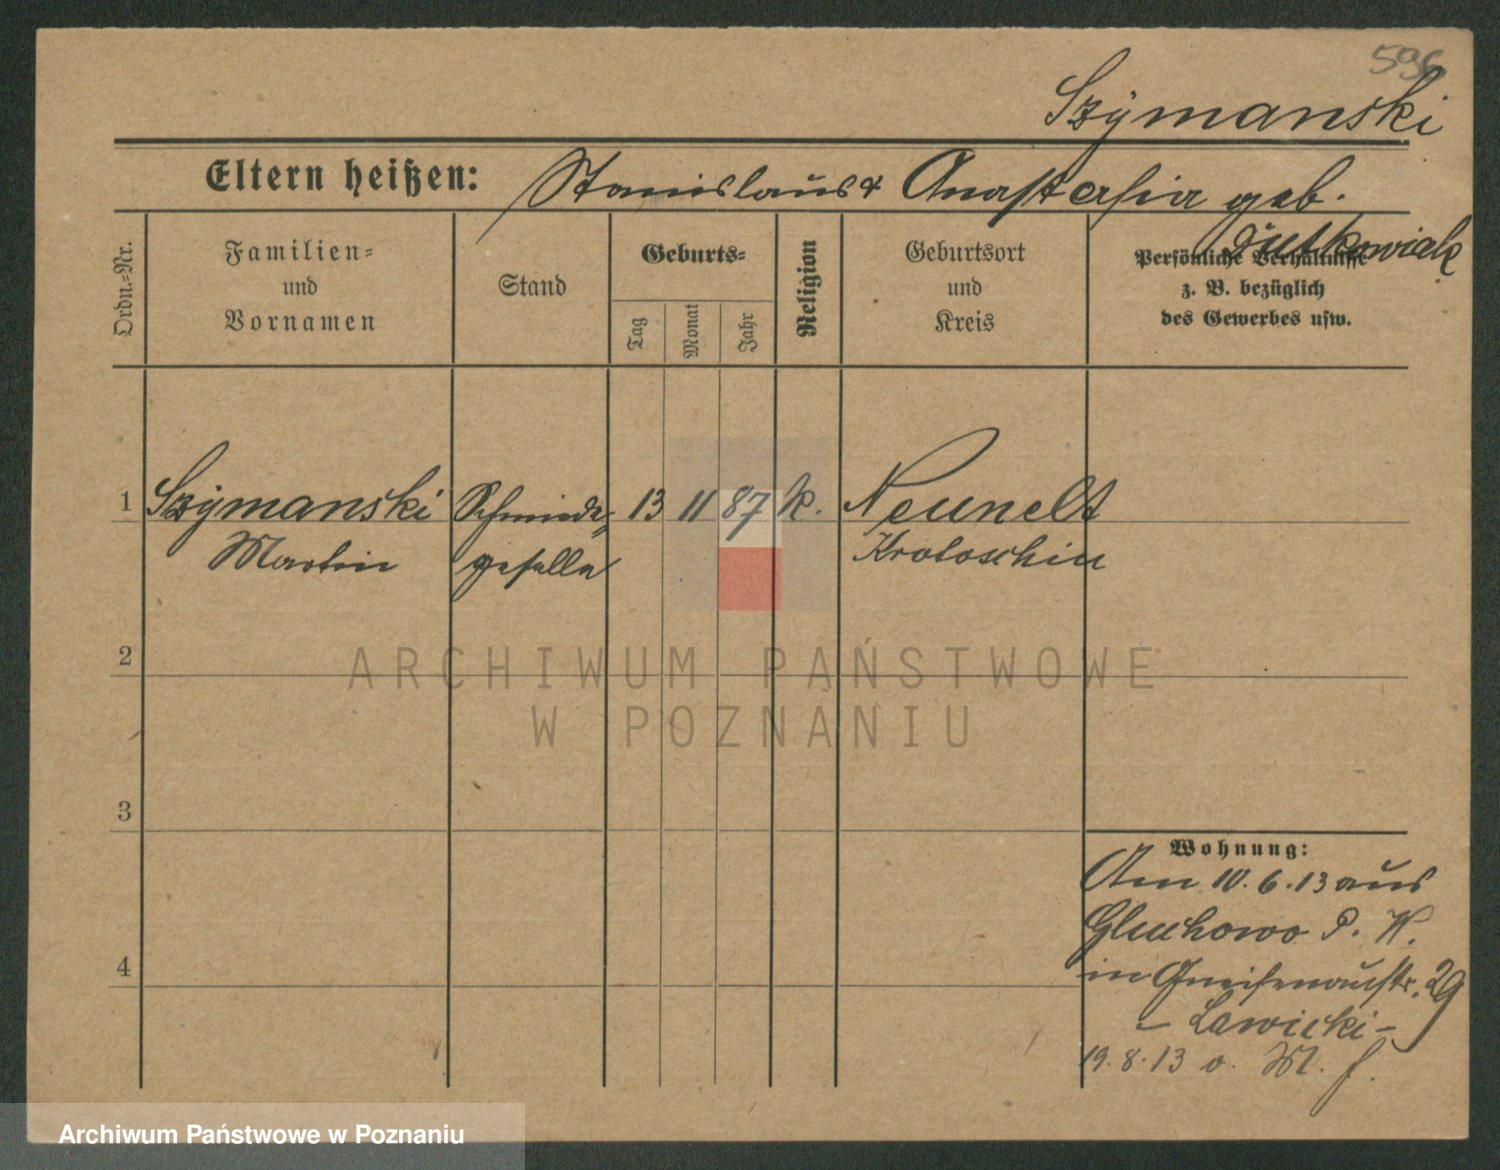 596
Szymanski
Eltern heißen: Stanislaus & Anastasia geb.
Dutkowiak
Ordn.-Nr.
Familien-
und
Vornamen
Stand
Geburts-
Tag
Monat
Jahr
Religion
Geburtsort
und
Kreis
Persönliche Verhältnisse
z. B. bezüglich
des Gewerbes usw.
1 Szymanski Schmiede- 13 11 87 k. Neuwelt
Martin geselle Krotoschin
2
3
4
ARCHIWUM PAŃSTWOWE
W POZNANIU
Wohnung:
Am 10.6.13 aus
Gluchowo P. W.
in Gneisenaustr. 29
- Lawicki -
19.8.13 v. M.
Archiwum Państwowe w Poznaniu